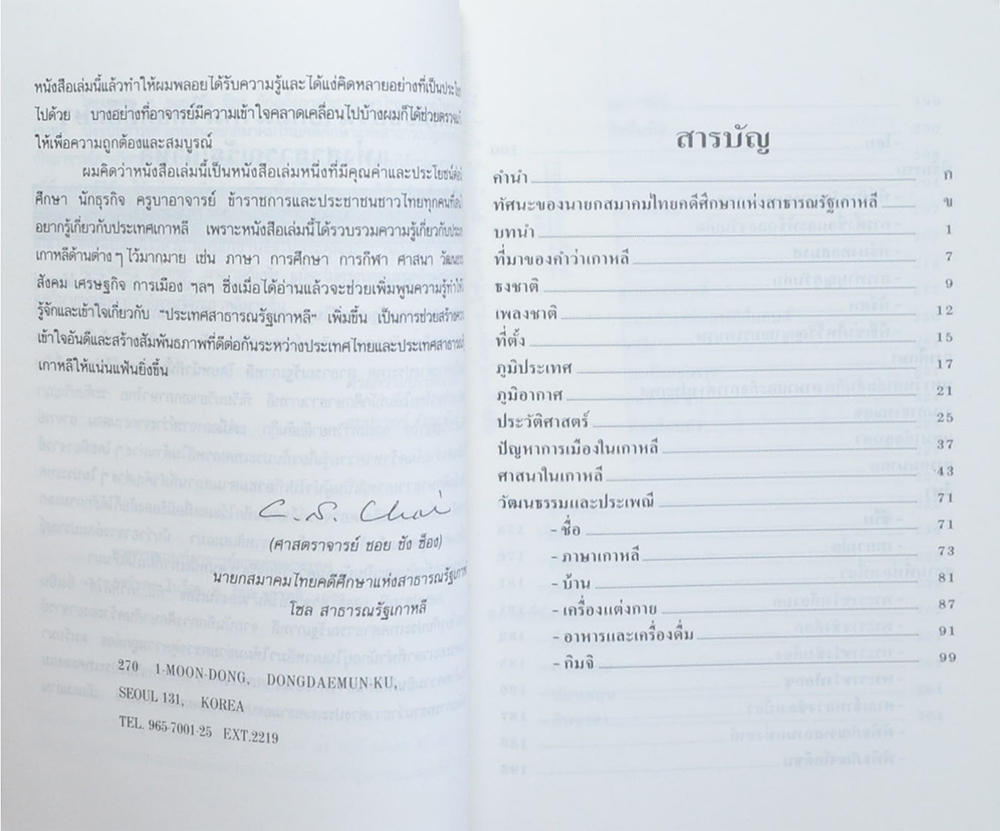 หนังสือเล่มนี้แล้วทำให้ผมพลอยได้รับความรู้และได้แง่คิดหลายอย่างที่เป็น
ไปด้วย บางอย่างที่อาจารย์มีความเข้าใจคลาดเคลื่อนไปบ้างผมก็ได้ช่วย
ให้เพื่อความถูกต้องและสมบูรณ์
ผมคิดว่าหนังสือเล่มนี้เป็นหนังสือเล่มหนึ่งที่มีคุณค่าและประโยชน์
ศึกษา นักธุรกิจ ครูบาอาจารย์ ข้าราชการและประชาชนชาวไทยทุกคน
อยากรู้เกี่ยวกับประเทศเกาหลี เพราะหนังสือเล่มนี้ได้รวบรวมความรู้เกี่ยวกับ
เกาหลีด้านต่างๆ ไว้มากมาย เช่น ภาษา การศึกษา การกีฬา ศาสนา
สังคม เศรษฐกิจ การเมือง ฯลฯ ซึ่งเมื่อได้อ่านแล้วจะช่วยเพิ่มพูนความรู้
รู้จักและเข้าใจเกี่ยวกับ "ประเทศสาธารณรัฐเกาหลี" เพิ่มขึ้น เป็นการช่วยสร้าง
เข้าใจอันดีและสร้างสัมพันธภาพที่ดีต่อกันระหว่างประเทศไทยและประเทศ
เกาหลีให้แน่นแฟ้นยิ่งขึ้น
C.S. Choi
(ศาสตราจารย์ ชอย ชัง ซ็อง)
นายกสมาคมไทยคดีศึกษาแห่งสาธารณรัฐ
โซล สาธารณรัฐเกาหลี
270 1-MOON-DONG, DONGDAEMUN-KU,
SEOUL 131, KOREA
TEL. 965-7001-25 EXT.2219
สารบัญ
คำนำ ก
ทัศนะของนายกสมาคมไทยคดีศึกษาแห่งสาธารณรัฐเกาหลี ข
บทนำ 1
ที่มาของคำว่าเกาหลี 7
ธงชาติ 9
เพลงชาติ 12
ที่ตั้ง 15
ภูมิประเทศ 17
ภูมิอากาศ 21
ประวัติศาสตร์ 25
ปัญหาการเมืองในเกาหลี 37
ศาสนาในเกาหลี 43
วัฒนธรรมและประเพณี 71
- ชื่อ 71
- ภาษาเกาหลี 73
- บ้าน 81
- เครื่องแต่งกาย 87
- อาหารและเครื่องดื่ม 91
- กิมจิ 99